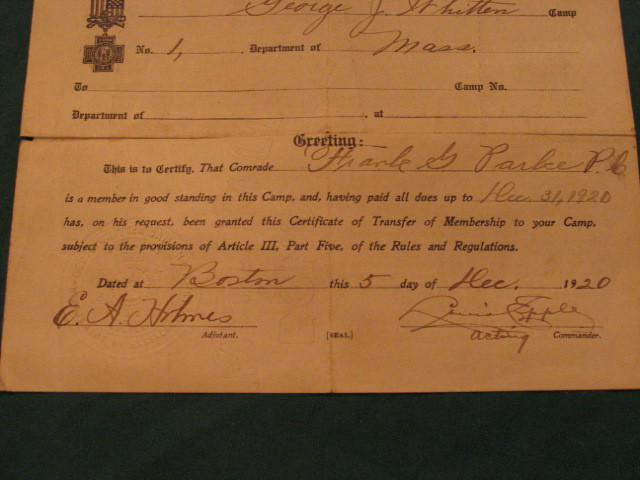 George J. Whitten Camp
No. 1, Department of Mass.
To Camp No.
Department of at
Greeting:
This is to Certify, That Comrade Frank G Parke P.C
is a member in good standing in this Camp, and, having paid all dues up to Dec. 31, 1920
has, on his request, been granted this Certificate of Transfer of Membership to your Camp,
subject to the provisions of Article III, Part Five, of the Rules and Regulations.
Dated at Boston this 5 day of Dec. 1920
E. A. Holmes
Adjutant. [SEAL] acting Commander.